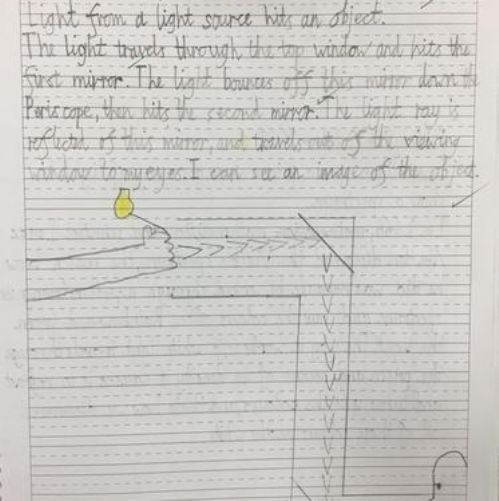 Light from a light source hits an object.
The light travels through the top window and hits the
first mirror. The light bounces off this mirror down the
Periscope, then hits the second mirror. The light ray is
reflected of this mirror, and travels out of the viewing
window to my eyes. I can see an image of the object.